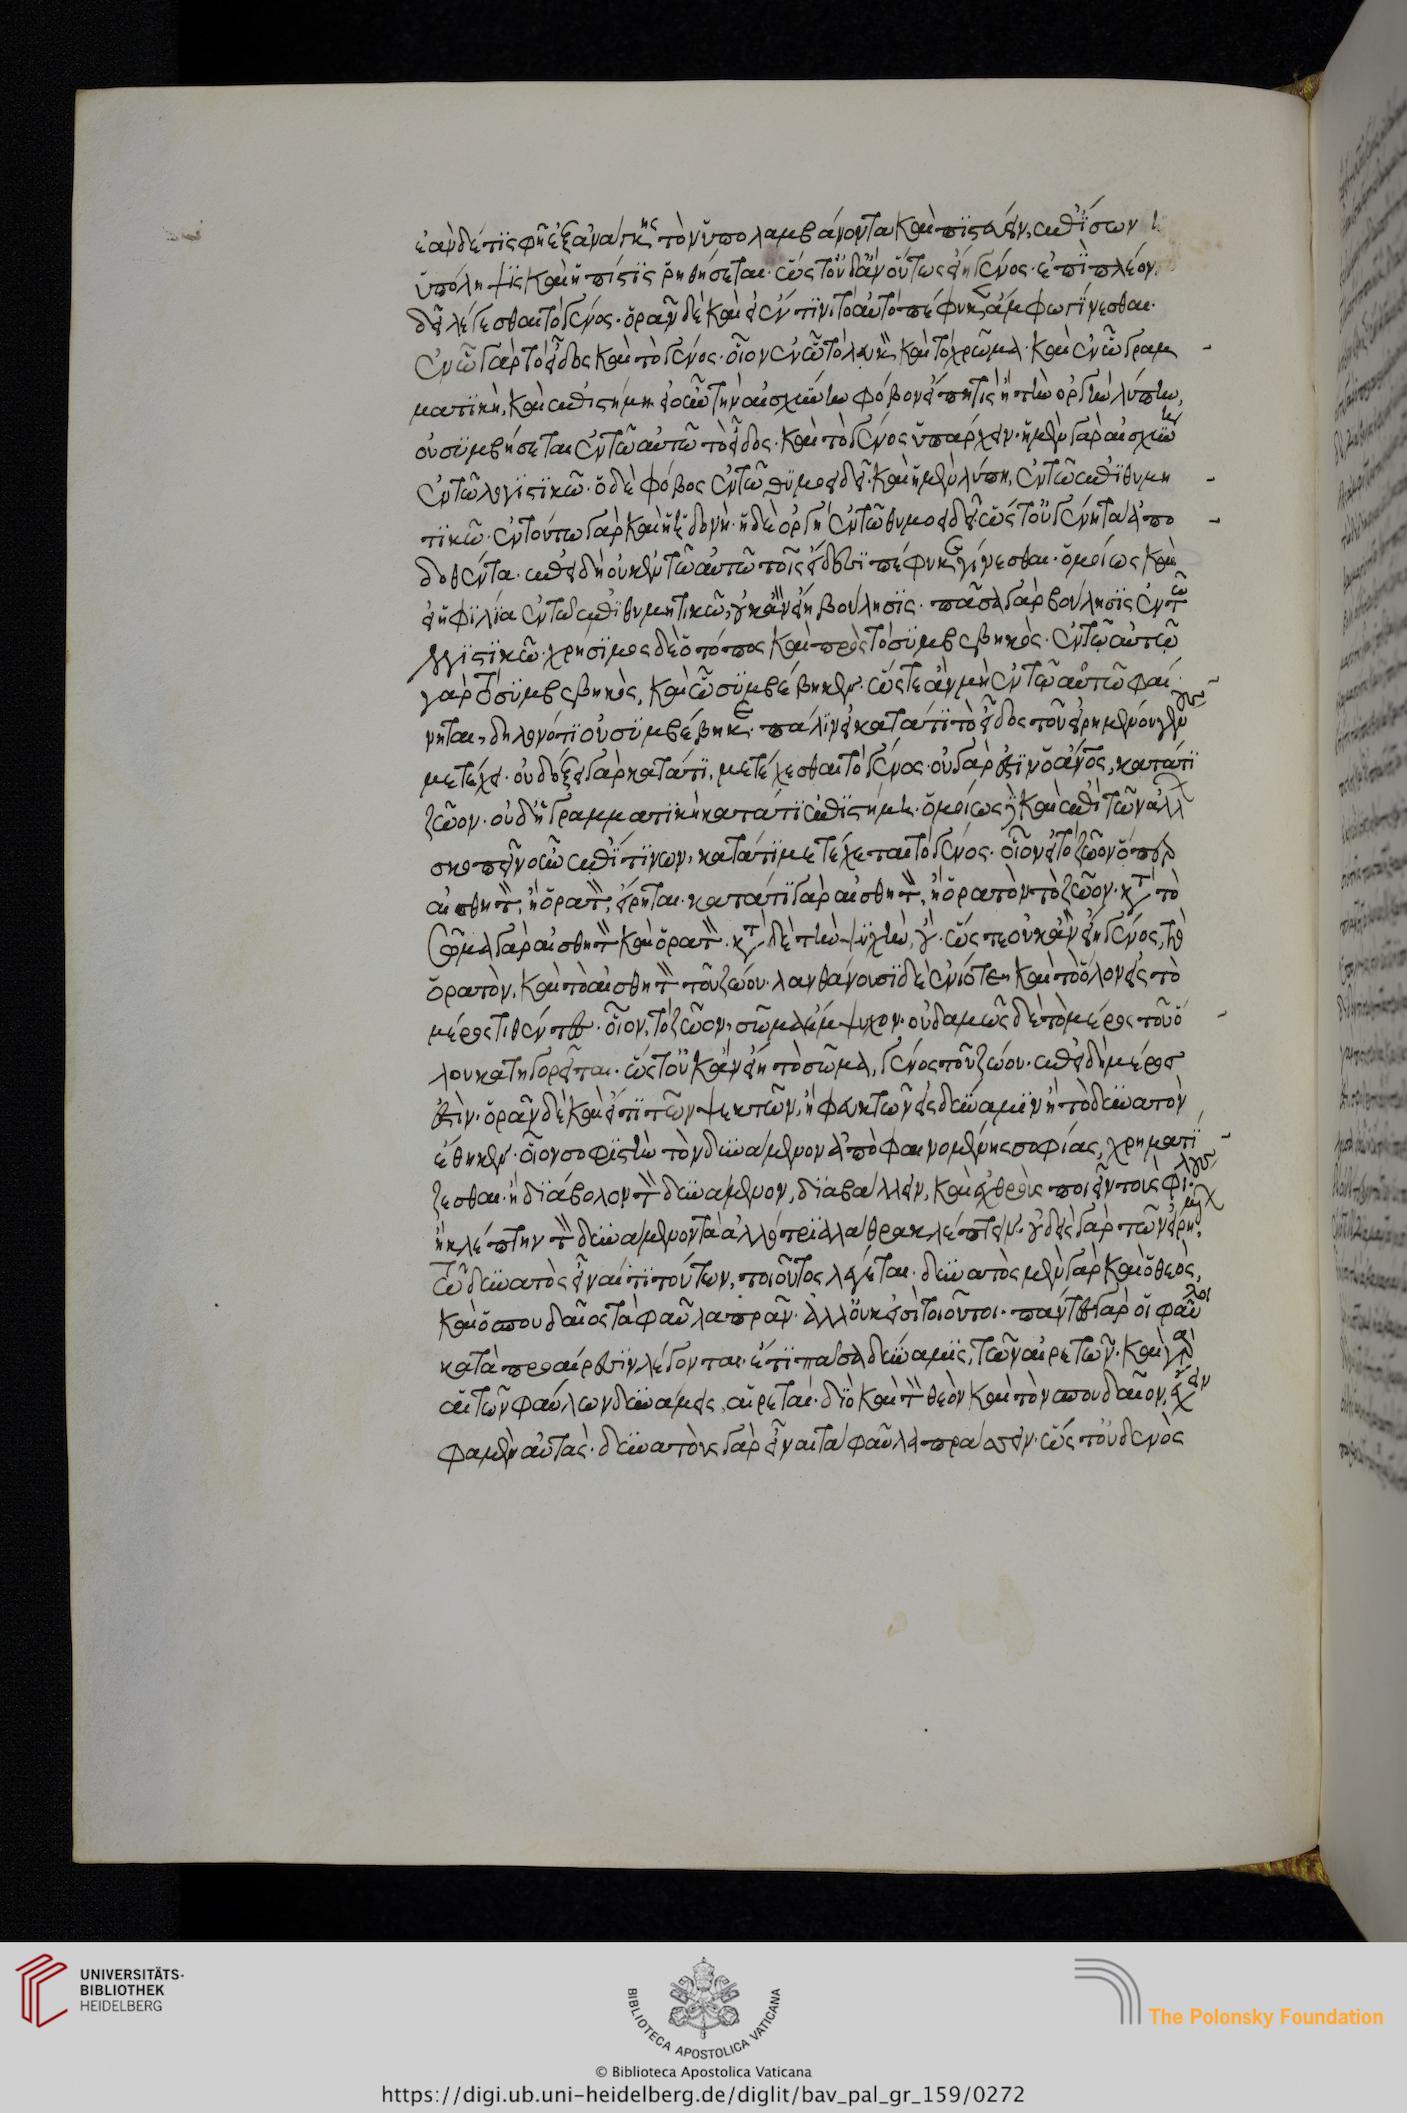 ἐὰν δέ τις φῆ ἐξ ἀνάγκης τὸν ὑπολαμβάνοντα καὶ πιστεύειν, ἐπίσον ἡ
ὑπόληψις καὶ ἡ πίστις ῥηθήσεται· ὥστ' οὐδ' ἂν οὕτως εἴη γένος· ἐπὶ πλέον
δεῖ λέγεσθαι τὸ γένος· ὁρᾶν δὲ καὶ εἰ ἐν τινι τὸ αὐτὸ πέφυκεν ἄμφω γίνεσθαι·
ἐν ᾧ γὰρ τὸ εἶδος καὶ τὸ γένος· οἷον ἐν ᾧ τὸ λευκὸν καὶ τὸ χρῶμα· καὶ ἐν ᾧ γραμ
ματικὴ, καὶ ἐπιστήμη· ἐὰν οὖν τὴν αἰσχύνην φόβον εἴπῃ τις ἢ τὴν ὀργὴν λύπην,
οὐ συμβήσεται ἐν τῷ αὐτῷ τὸ εἶδος καὶ τὸ γένος ὑπάρχειν· ἡ μὲν γὰρ αἰσχύνη
ἐν τῷ λογιστικῷ· ὁ δὲ φόβος ἐν τῷ θυμοειδεῖ· καὶ ἡ μὲν λύπη, ἐν τῷ ἐπιθυμη
τικῷ· ἐν τούτω γὰρ καὶ ἡ ἡδονή· ἡ δὲ ὀργὴ ἐν τῷ θυμοειδεῖ ὥστ' οὐ γένη τὰ ἀπο
δοθέντα· ἐπειδὴ οὐκ ἐν τῷ αὐτῷ τοῖς εἴδεσι πέφυκε γίνεσθαι· ὁμοίως καὶ
εἰ ἡ φιλία ἐν τῷ ἐπιθυμητικῷ, οὐκ ἂν εἴη βούλησις· πᾶσα γὰρ βούλησις ἐν τῷ
λογιστικῷ· χρήσιμος δὲ ὁ τόπος καὶ πρὸς τὸ συμβεβηκός· ἐν τῷ αὐτῷ
γὰρ τὸ συμβεβηκὸς, καὶ ᾧ συμβέβηκεν· ὥστε ἂν μὴ ἐν τῷ αὐτῷ φαί
νηται, δηλονότι οὐ συμβέβηκε· πάλιν εἰ κατά τι τὸ εἶδος τοῦ εἰρημένου γένους
μετέχει· οὐ δοξεῖ γὰρ κατά τι, μετέχεσθαι τὸ γένος· οὐ γάρ ἐστιν ὁ ἄνθρωπος, κατά τι
ζῶον· οὐδ' ἡ γραμματικὴ κατά τι ἐπιστήμη· ὁμοίως δὲ καὶ ἐπὶ τῶν ἄλλων
σκοπεῖν οὖν εἰ ἐπί τινων, κατά τι μετέχεται τὸ γένος· οἷον εἰ τὸ ζῶον ὅπερ
αἰσθητὸν, ἢ ὁρατὸν, εἴρηται· κατά τι γὰρ αἰσθητὸν, ἢ ὁρατὸν τὸ ζῶον· κατὰ τὸ
σῶμα γὰρ αἰσθητὸν καὶ ὁρατὸν· κατὰ δὲ τὴν ψυχὴν, οὔ· ὥστε οὐκ ἂν εἴη γένος, τὸ
ὁρατὸν, καὶ τὸ αἰσθητὸν τοῦ ζώου· λανθάνουσι δὲ ἐνίοτε καὶ τὸ ὅλον εἰς τὸ
μέρος τιθέντες· οἷον, τὸ ζῶον, σῶμα ἔμψυχον· οὐδαμῶς δὲ τὸ μέρος τοῦ ὅ
λου κατηγορεῖται· ὥστ' οὐκ ἂν εἴη τὸ σῶμα, γένος τοῦ ζώου· ἐπειδὴ μέρος
ἐστίν· ὁρᾶν δὲ καὶ εἴ τι τῶν ψεκτῶν, ἢ φευκτῶν εἰς δύναμιν ἢ τὸ δυνατὸν
ἔθηκεν· οἷον σοφιστὴν τὸν δυνάμενον ἀπὸ φαινομένης σοφίας, χρηματί
ζεσθαι· ἢ διάβολον τὸν δυνάμενον, διαβάλλειν, καὶ ἐχθροὺς ποιεῖν τοὺς φίλους·
ἢ κλέπτην τὸν δυνάμενον τὰ ἀλλότρια λάθρα κλέπτειν· οὐδεὶς γὰρ τῶν εἰρημένων
τῷ δυνατὸς εἶναί τι τούτων, τοιοῦτος λέγεται· δυνατὸς μὲν γὰρ καὶ ὁ θεὸς,
καὶ ὁ σπουδαῖος τὰ φαῦλα πρᾶν· ἀλλ' οὐκ εἰσὶ τοιοῦτοι· πάντες γὰρ οἱ φαῦλοι
κατὰ προαίρεσιν λέγονται· ἔτι πᾶσα δύναμις, τῶν αἱρετῶν· καὶ γὰρ
αἱ τῶν φαύλων δυνάμεις, αἱρεταί· διὸ καὶ τὸν θεὸν καὶ τὸν σπουδαῖον, ἔχειν
φαμὲν αὐτάς· δυνατοὺς γὰρ εἶναι τὰ φαῦλα πράσσειν· ὥστ' οὐδενὸς
UNIVERSITÄTS-
BIBLIOTHEK
HEIDELBERG
BIBLIOTECA APOSTOLICA VATICANA
The Polonsky Foundation
© Biblioteca Apostolica Vaticana
https://digi.ub.uni-heidelberg.de/diglit/bav_pal_gr_159/0272